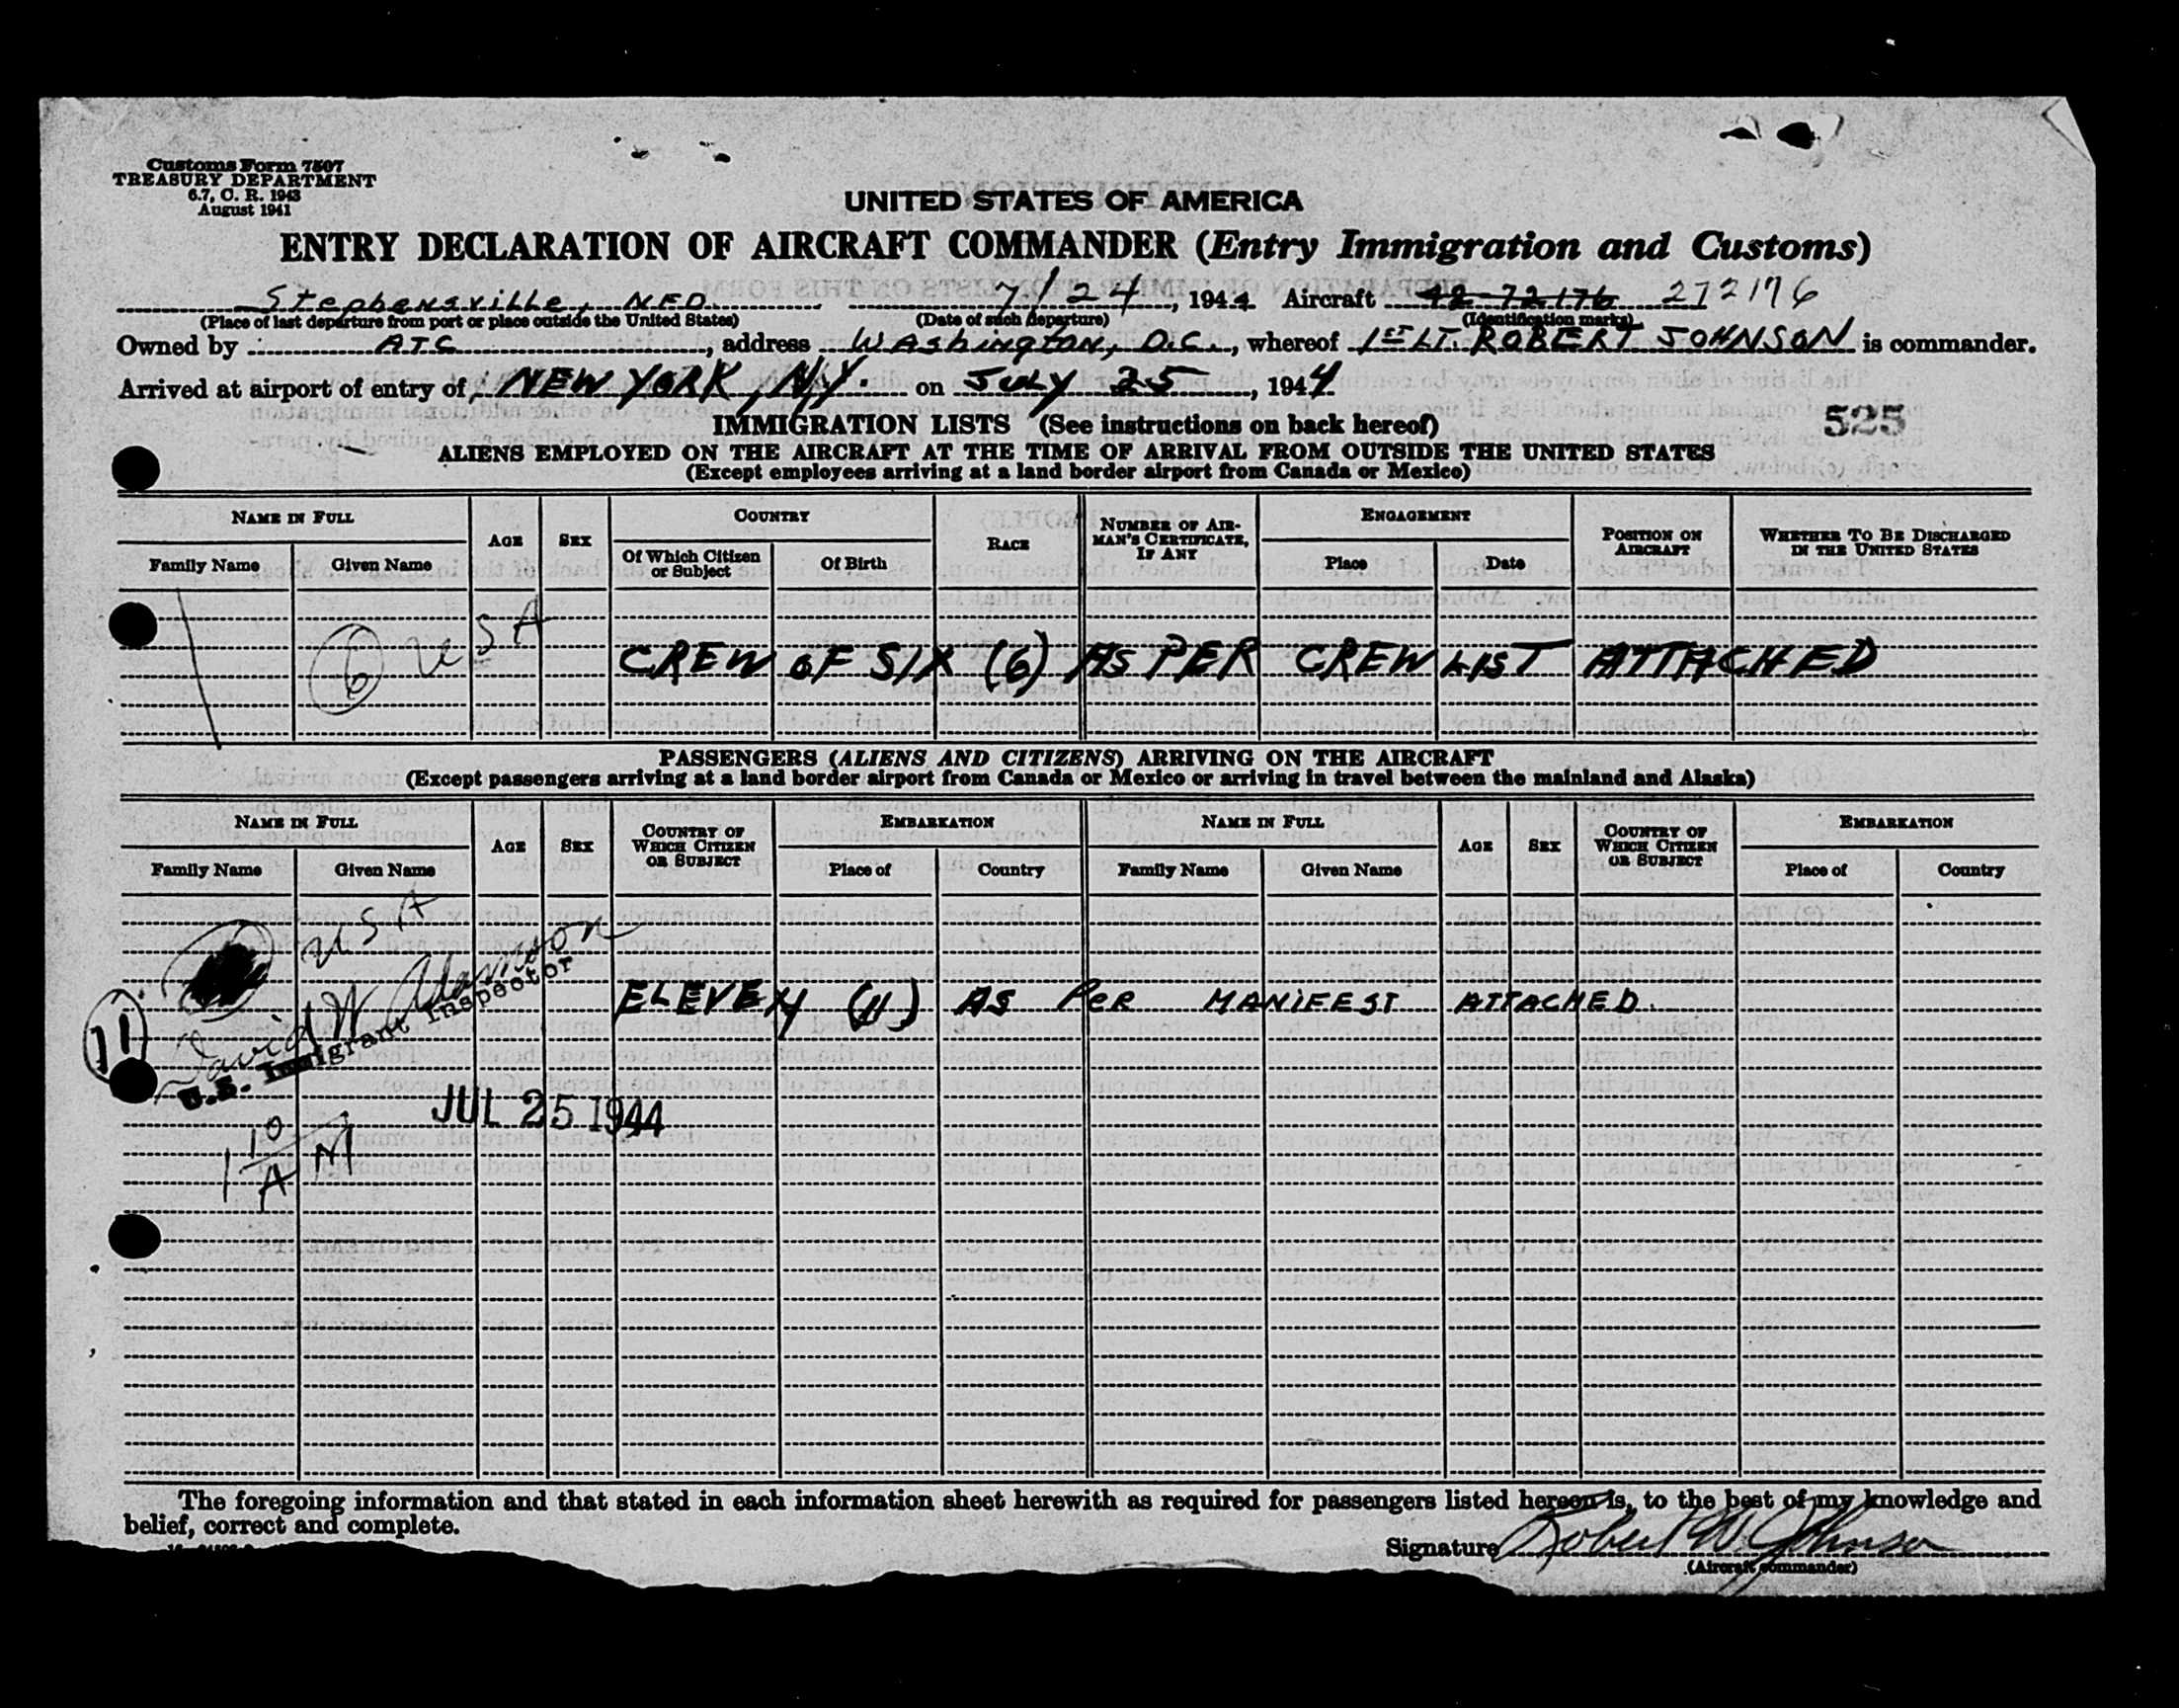 Customs Form 7507
TREASURY DEPARTMENT
6.7, C. R. 1943
August 1941
UNITED STATES OF AMERICA
ENTRY DECLARATION OF AIRCRAFT COMMANDER (Entry Immigration and Customs)
Stephensville, NFD. 7/24, 1944 Aircraft 42-72176 272176
(Place of last departure from port or place outside the United States) (Date of such departure) (Identification marks)
Owned by ATC, address Washington, D.C., whereof 1ST LT. ROBERT JOHNSON is commander.
Arrived at airport of entry of NEW YORK, N.Y. on JULY 25, 1944
525
IMMIGRATION LISTS (See instructions on back hereof)
ALIENS EMPLOYED ON THE AIRCRAFT AT THE TIME OF ARRIVAL FROM OUTSIDE THE UNITED STATES
(Except employees arriving at a land border airport from Canada or Mexico)
NAME IN FULL AGE SEX COUNTRY RACE NUMBER OF AIRMAN'S CERTIFICATE, IF ANY ENGAGEMENT POSITION ON AIRCRAFT WHETHER TO BE DISCHARGED IN THE UNITED STATES
Family Name Given Name Of Which Citizen or Subject Of Birth Place Date
6 USA
CREW OF SIX (6) AS PER CREW LIST ATTACHED
PASSENGERS (ALIENS AND CITIZENS) ARRIVING ON THE AIRCRAFT
(Except passengers arriving at a land border airport from Canada or Mexico or arriving in travel between the mainland and Alaska)
NAME IN FULL AGE SEX COUNTRY OF WHICH CITIZEN OR SUBJECT EMBARKATION NAME IN FULL AGE SEX COUNTRY OF WHICH CITIZEN OR SUBJECT EMBARKATION
Family Name Given Name Place of Country Family Name Given Name Place of Country
USA
11
David W Adamson
U.S. Immigrant Inspector
ELEVEN (11) AS PER MANIFEST ATTACHED.
JUL 25 1944
1 10 A M
The foregoing information and that stated in each information sheet herewith as required for passengers listed hereon is, to the best of my knowledge and
belief, correct and complete.
Signature Robert W Johnson
(Aircraft commander)